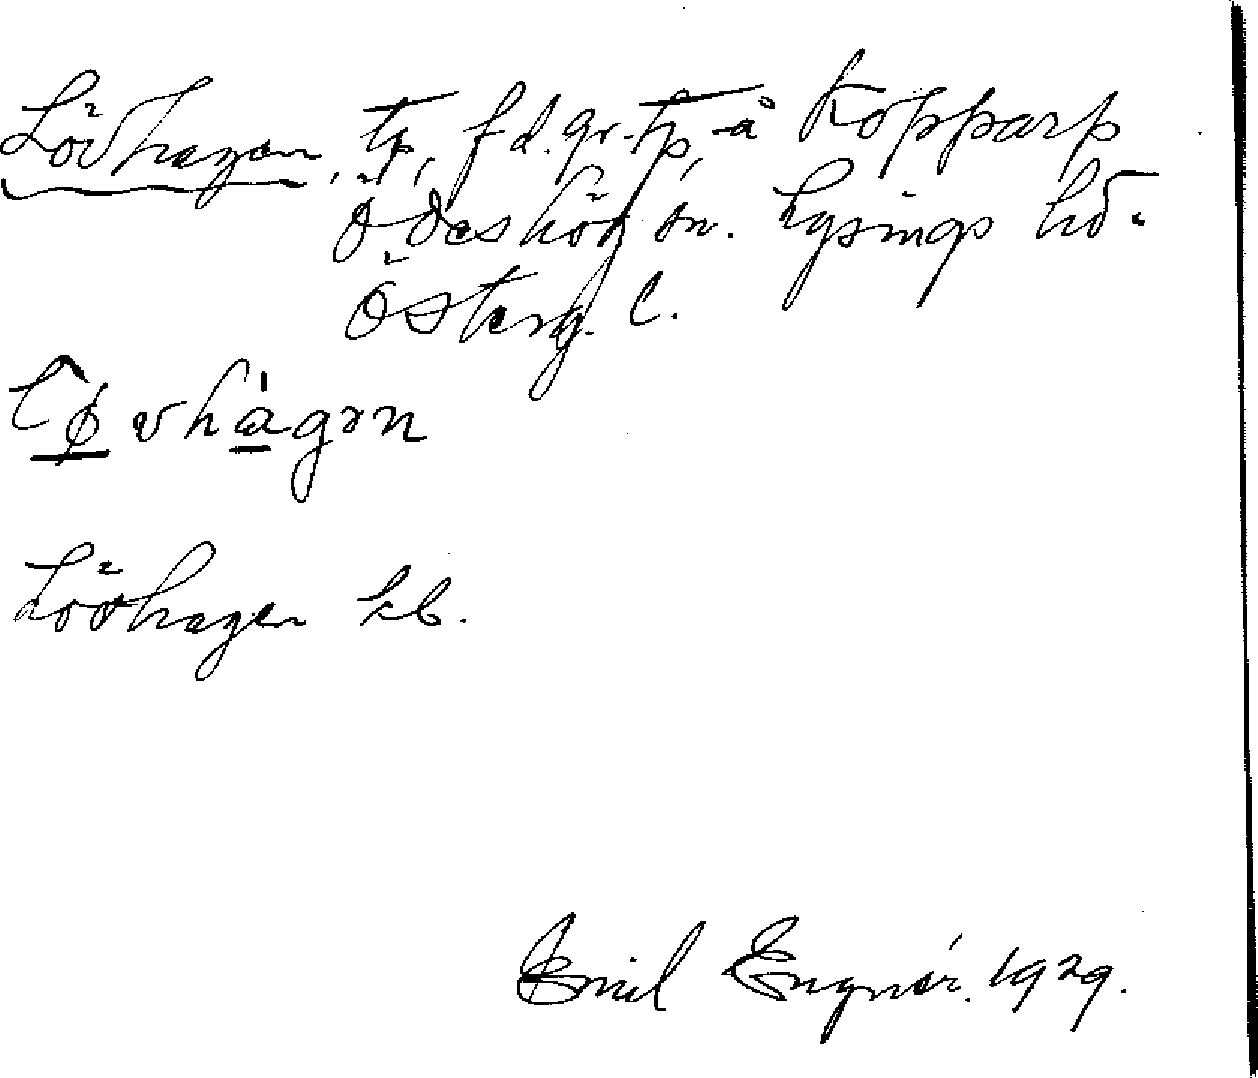 Lövhagen, tp, f d. gr.tp, å Kopparp
Ödeshög sn. Lysings hd.
Österg. l.
Löv hagen kb.
Emil Engnér. 1929.